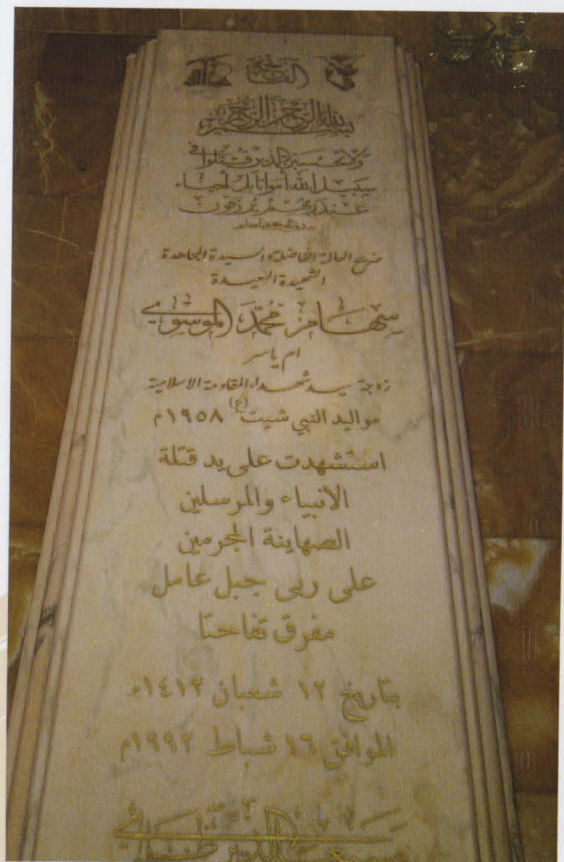 الفاتحة
بسم الله الرحمن الرحيم
ولا تحسبن الذين قتلوا في
سبيل الله أمواتا بل أحياء
عند ربهم يرزقون
ضريح العالمة الفاضلة والسيدة المجاهدة
الشهيدة السعيدة
سهام محمد الموسوي
ام ياسر
زوجة سيد شهداء المقاومة الاسلامية
مواليد النبي شيت (ع) ١٩٥٨م
استشهدت على يد قتلة
الانبياء والمرسلين
الصهاينة المجرمين
على ربى جبل عامل
مفرق تفاحتا
بتاريخ ١٢ شعبان ١٤١٢ه
الموافق ١٦ شباط ١٩٩٢م
وسيعلم الذين ظلموا أي